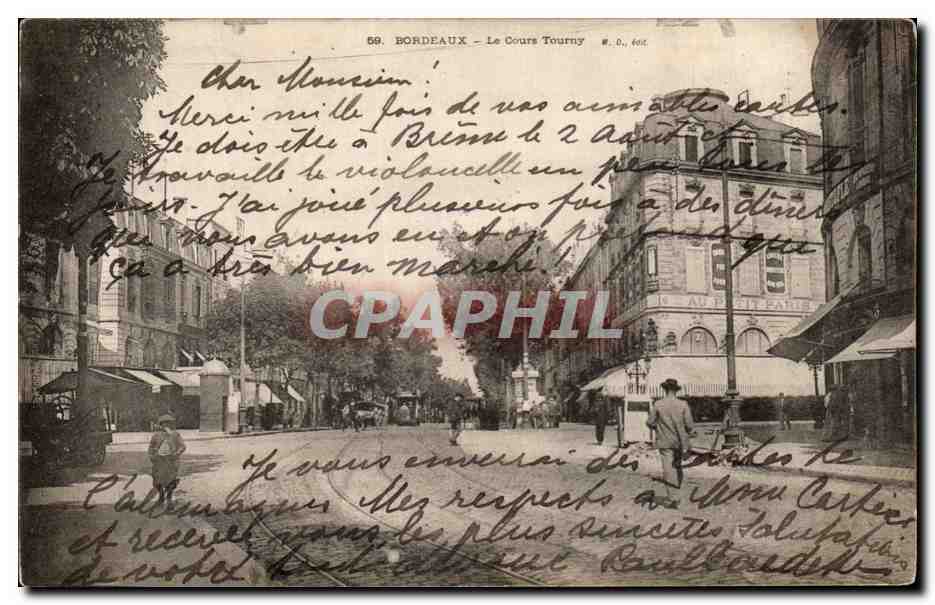 59. BORDEAUX - Le Cours Tourny M. D., édit.
Cher Monsieur!
Merci mille fois de vos aimables cartes.
Je dois être à Brême le 2 Août et
Je travaille le violoncelle un peu tous les
jours. J'ai joué plusieurs fois à des dîners
que nous avons eu et on prétend que
ça a très bien marché!
AU PETIT PARIS
CPAPHIL
Je vous enverrai des cartes de
l'Allemagne Mes respects à Mme
et recevez vous les plus sincères Salutations
de votre